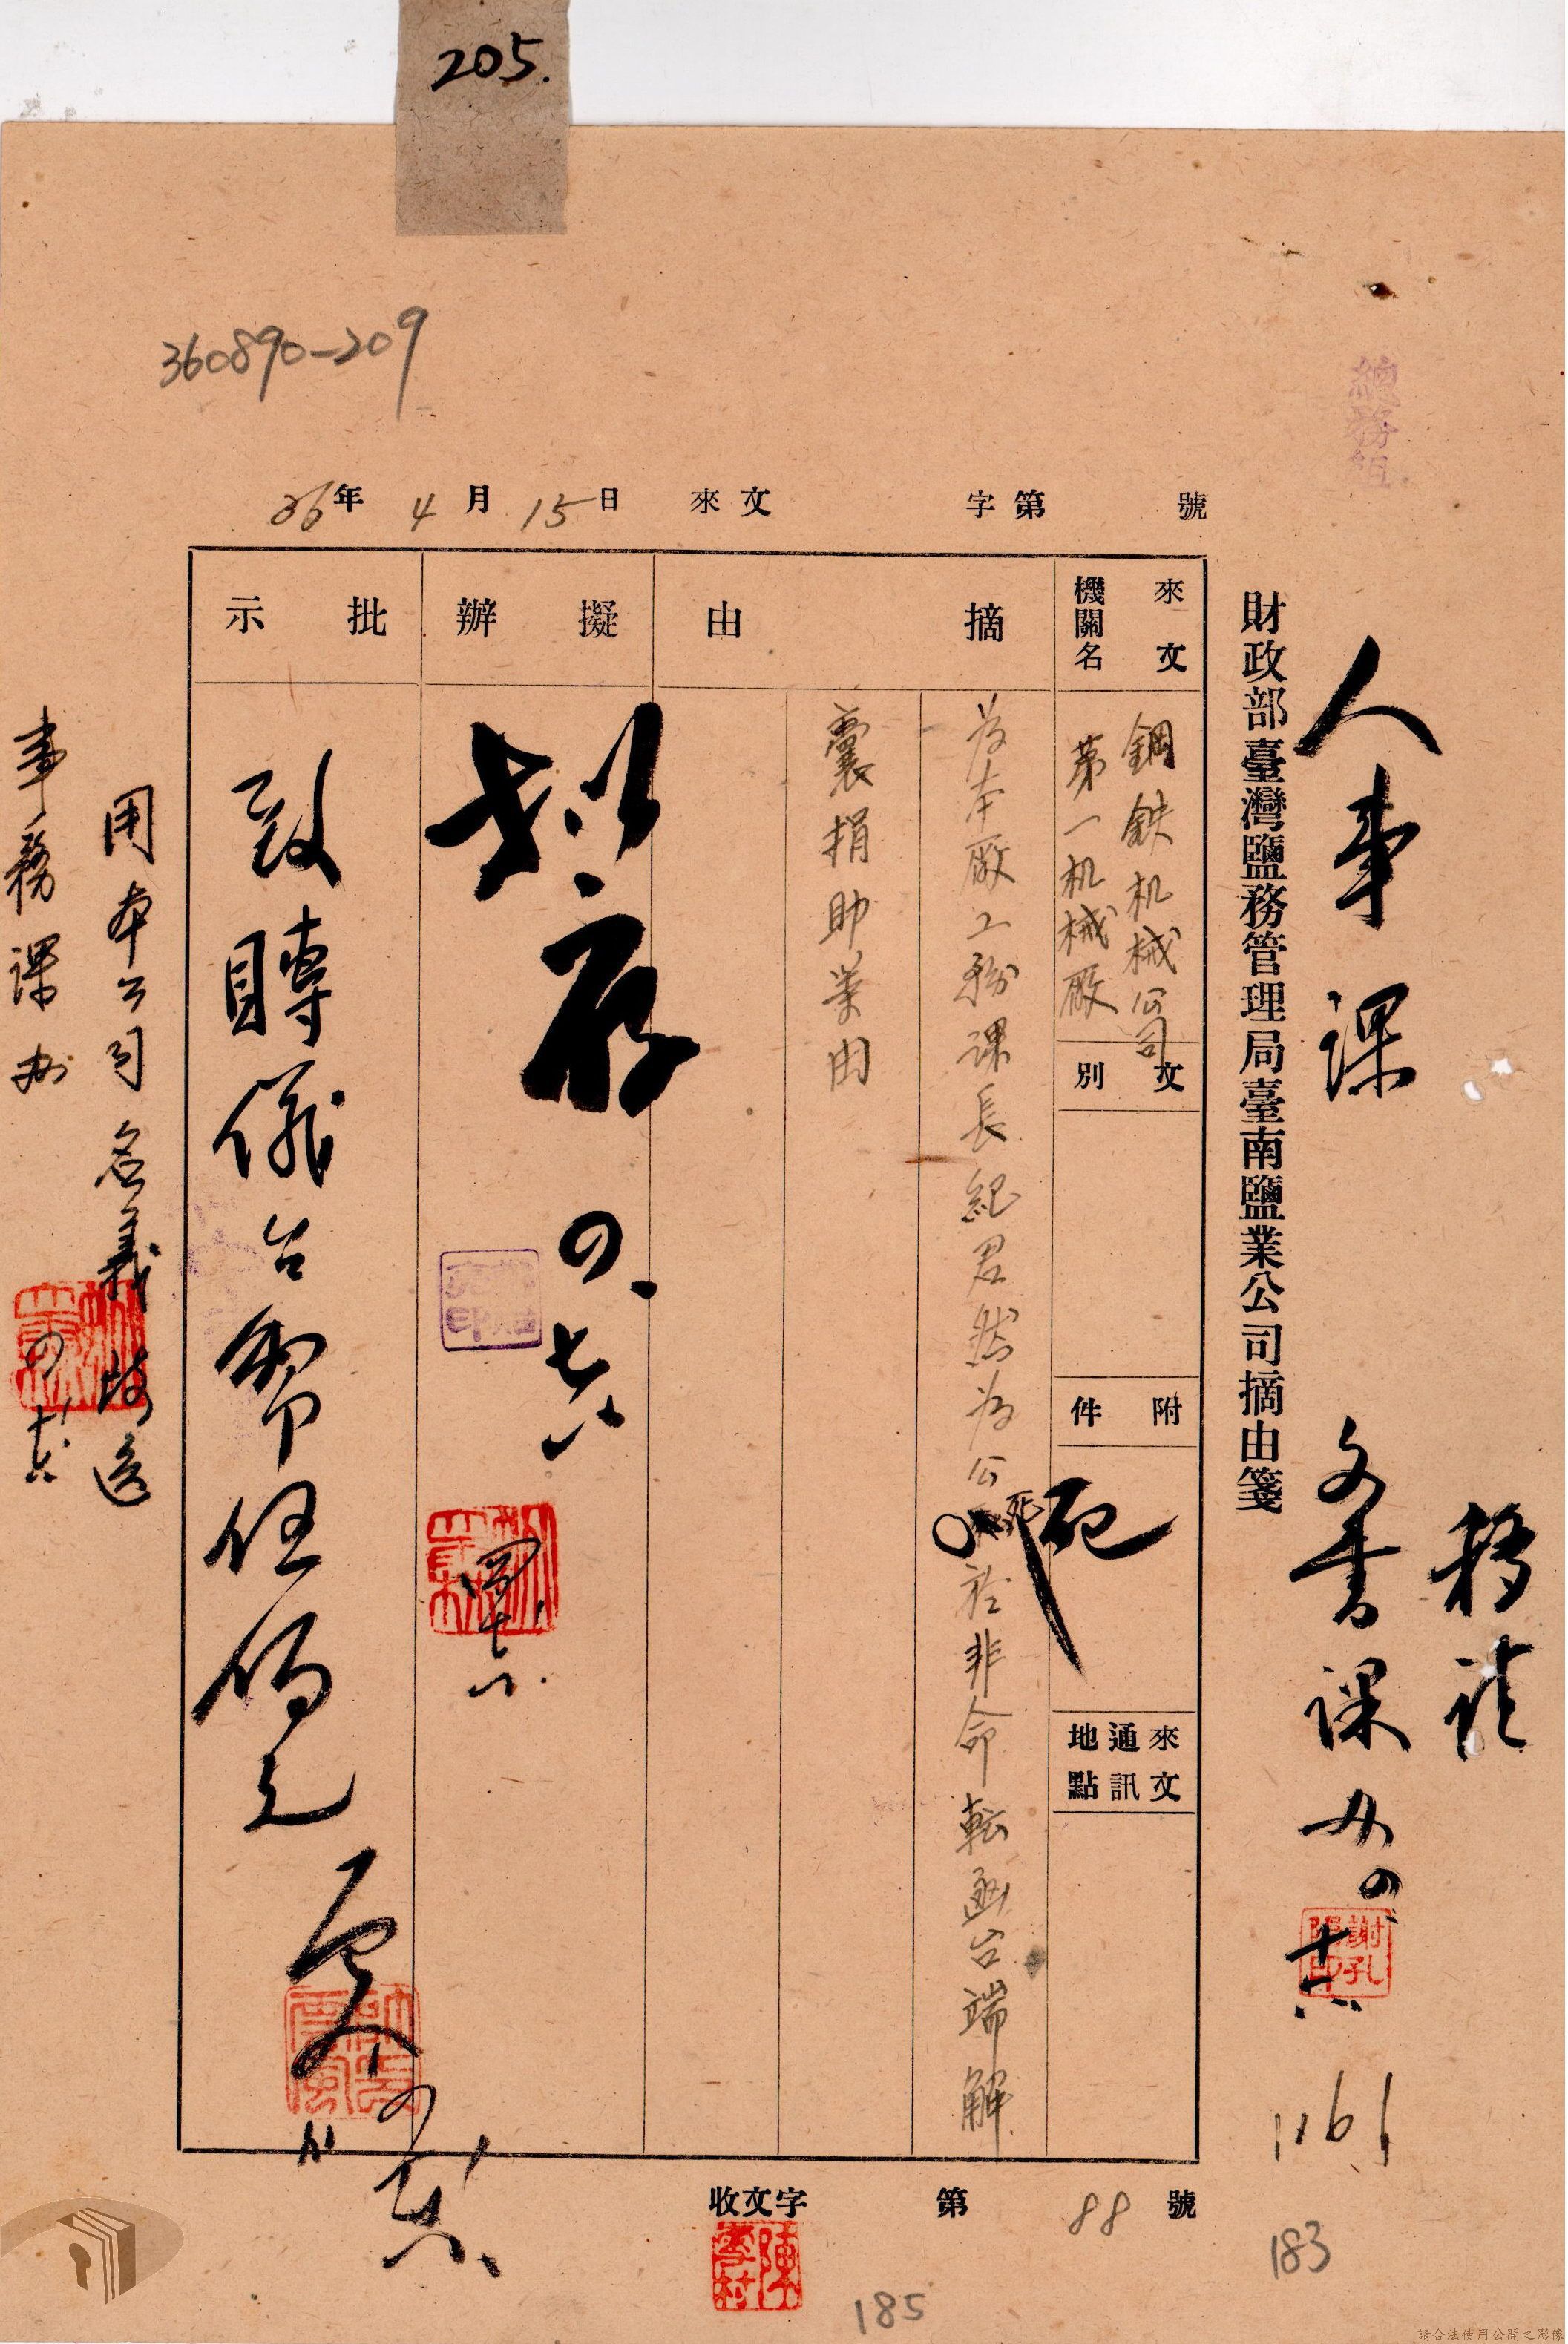 205.
360890-209
總務組
36年4月15日 來文 字第 號
移請
人事課
文書課
財政部臺灣鹽務管理局臺南鹽業公司摘由箋
來文機關名
鋼鉄机械公司
第一机械廠
文別
附件
來文通訊地點
摘由
為本廠工務課長紀君然為公死於非命転函台端解
死
囊捐助業由
擬辦
擬存
四
批示
致賻儀台幣伍佰元
用本公司名義 送
事務課办
謝孔陽印
1161
收文字 第88號
陳
村
183
185
請合法使用公開之影像